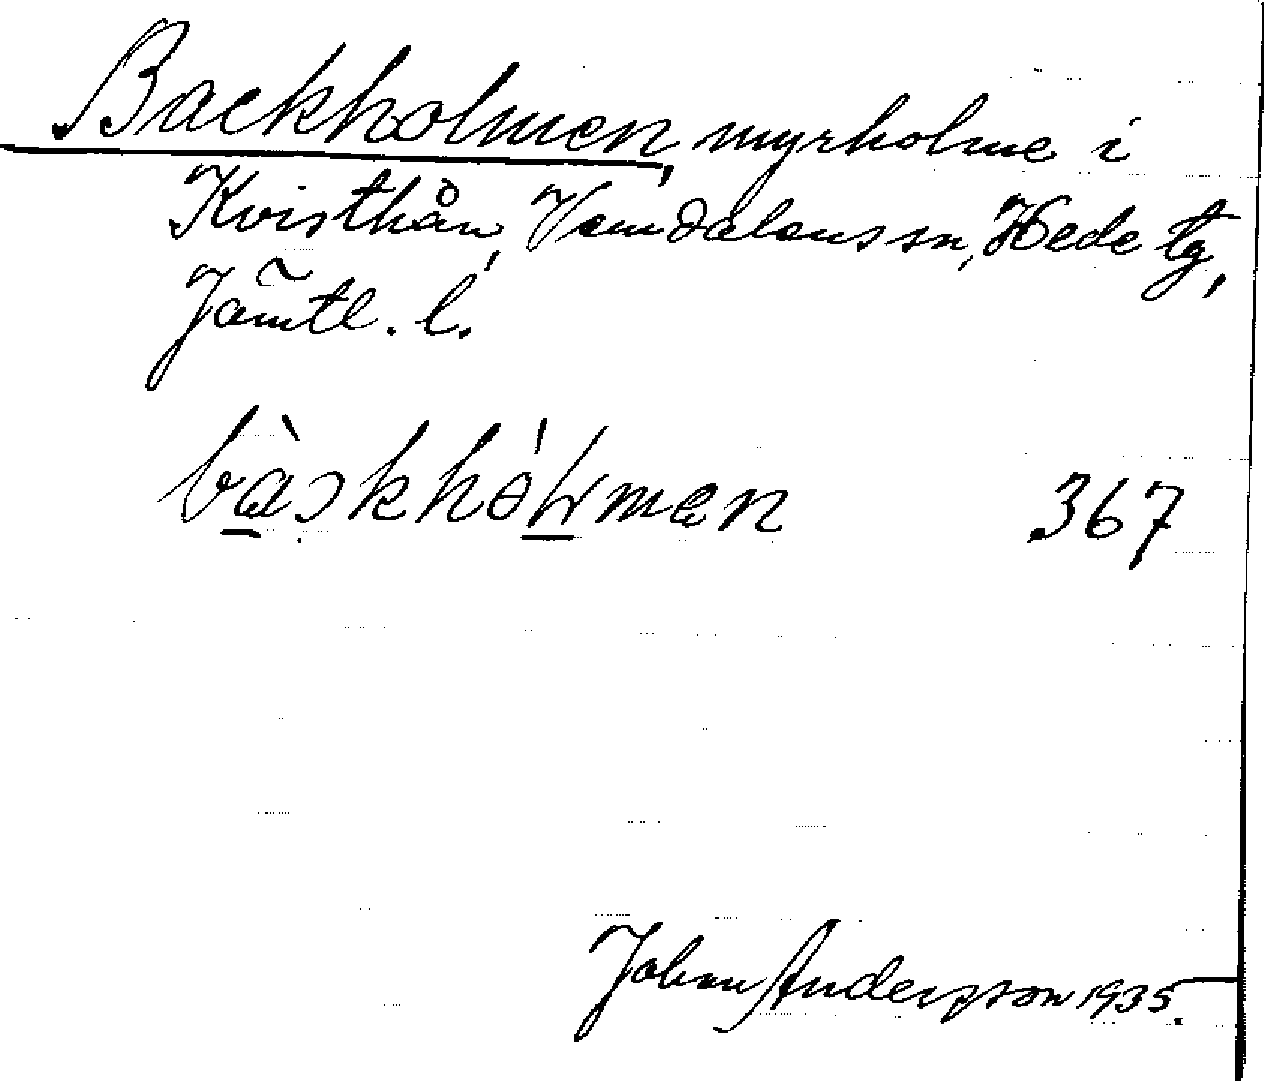 Backholmen, myrholme i
Kvisthån, Vemdalens sn, Hede tg,
Jämtl. l.
367
Johan Andersson 1935.